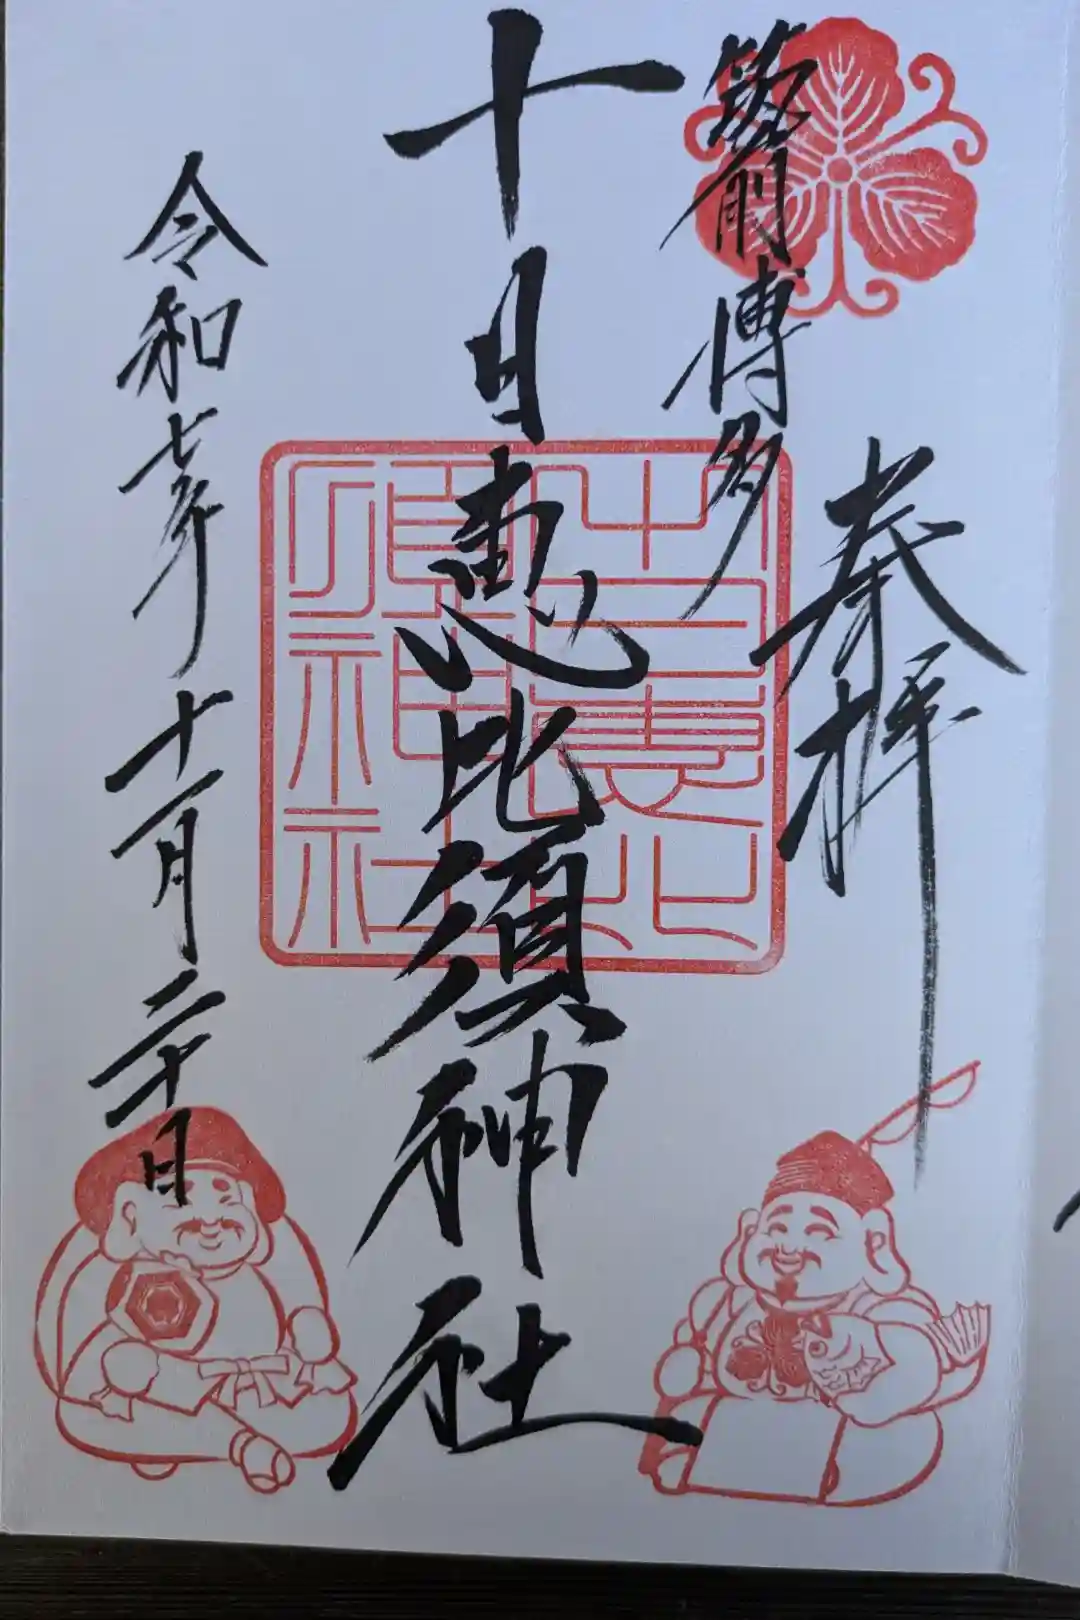 奉拝
筑前博多
十日恵比須神社
十日恵比
須神社
令和七年十一月二十日